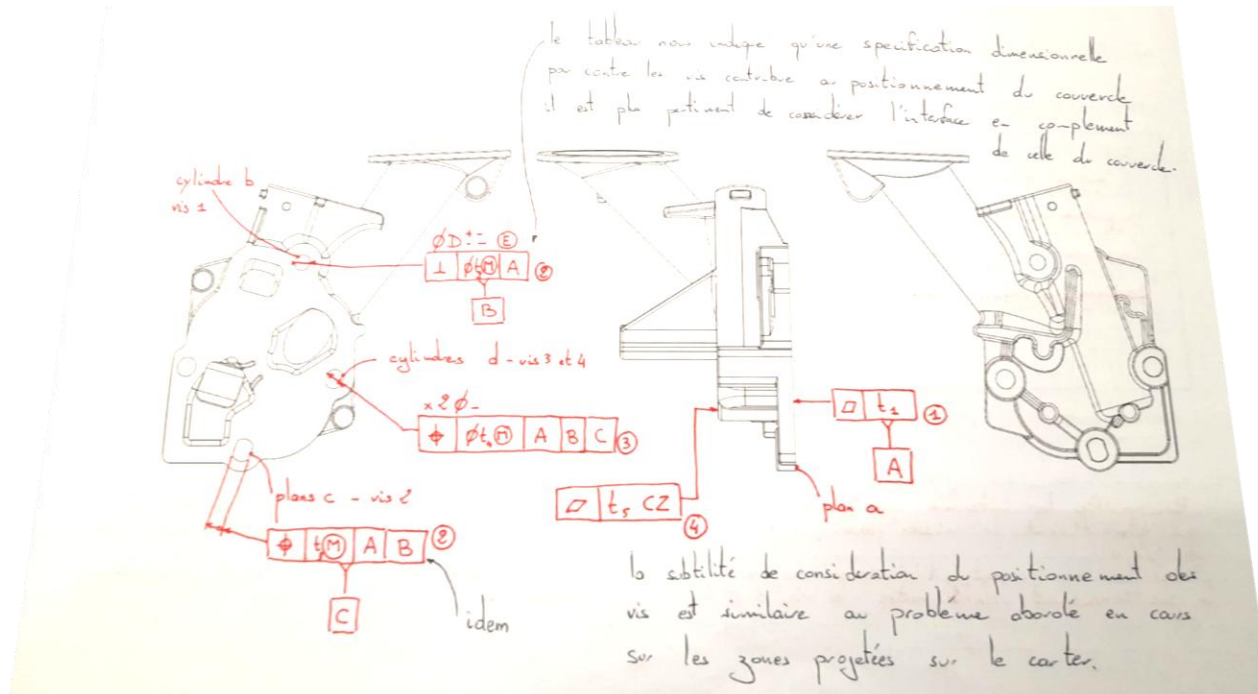 le tableau nous indique qu'une specification dimensionnelle
par contre les vis contribue au positionnement du couvercle
il est plus pertinent de considérer l'interface en complement
de celle du couvercle.
cylindre b
vis 1
ØD +- Ⓔ
⊥ Øt Ⓜ A ②
B
cylindres d - vis 3 et 4
×2 Ø -
⌖ Øt Ⓜ A B C ③
▱ t1 ①
A
plans c - vis 2
▱ t5 CZ
④
plan a
⌖ t Ⓜ A B ②
C
idem
la subtilité de consideration du positionnement des
vis est similaire au problème abordé en cours
sur les zones projetées sur le carter.